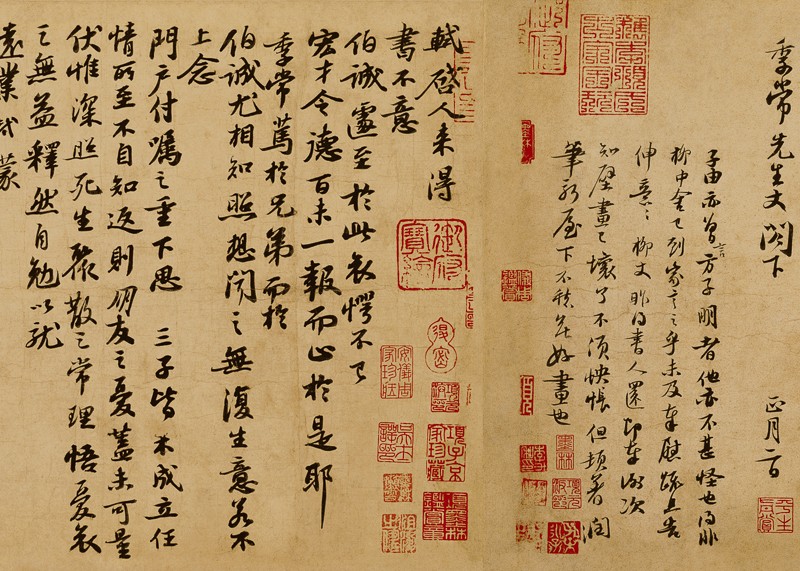 季常先生丈閤下 正月二日
子由亦曾言方子明者他亦不甚怪也得非
柳中舍已到家言之乎未及奉慰疏且告
伸意柳丈昨得書人還即奉謝次
知壁畫已壞了不須怏悵但頓著潤
筆新屋下不愁無好畫也
軾啓人來得
書不意
伯誠遽至於此哀愕不已
宏才令德百未一報而止於是耶
季常篤於兄弟而於
伯誠尤相知照想聞之無復生意若不
上念
門戶付囑之重下思三子皆未成立任
情所至不自知返則朋友之憂蓋未可量
伏惟深照死生聚散之常理悟憂哀
之無益釋然自勉以就
遠業軾蒙